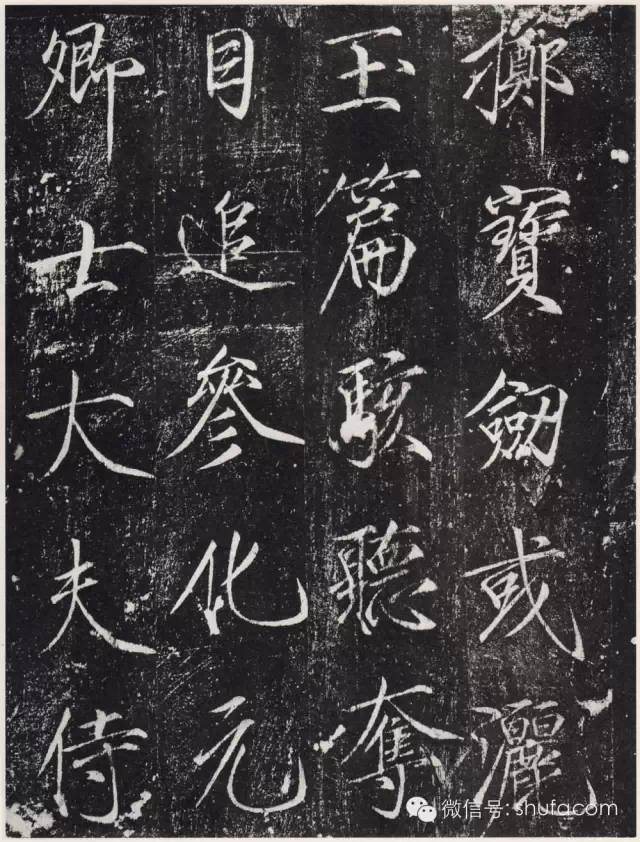 擲寶劒或灑
玉篇駭聽奪
目追參化元
卿士大夫侍
微信号: shufacom